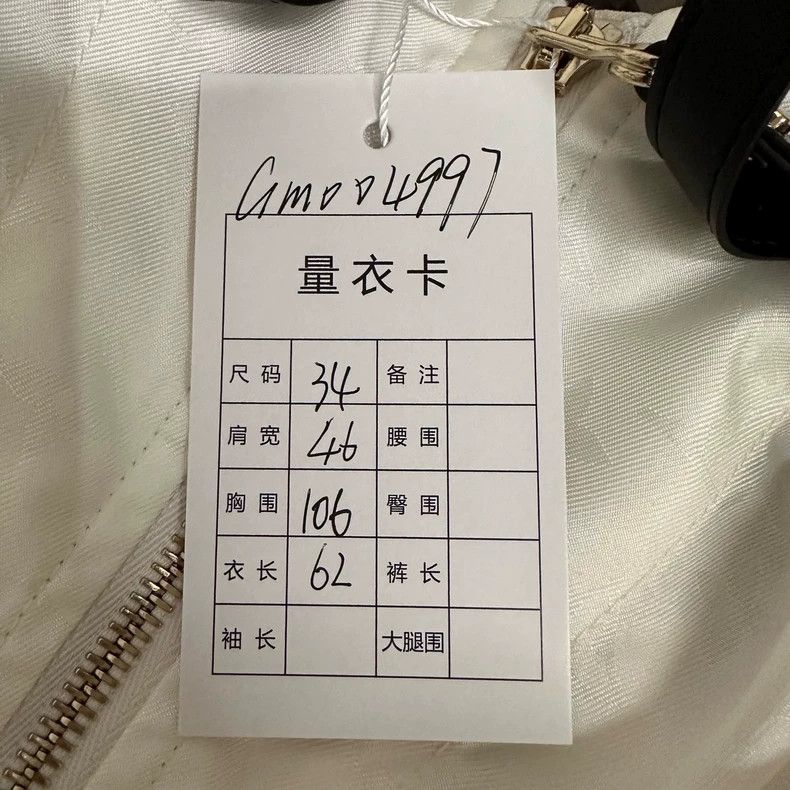 Gm004997
量衣卡
尺码 34 备注
肩宽 46 腰围
胸围 106 臀围
衣长 62 裤长
袖长 大腿围